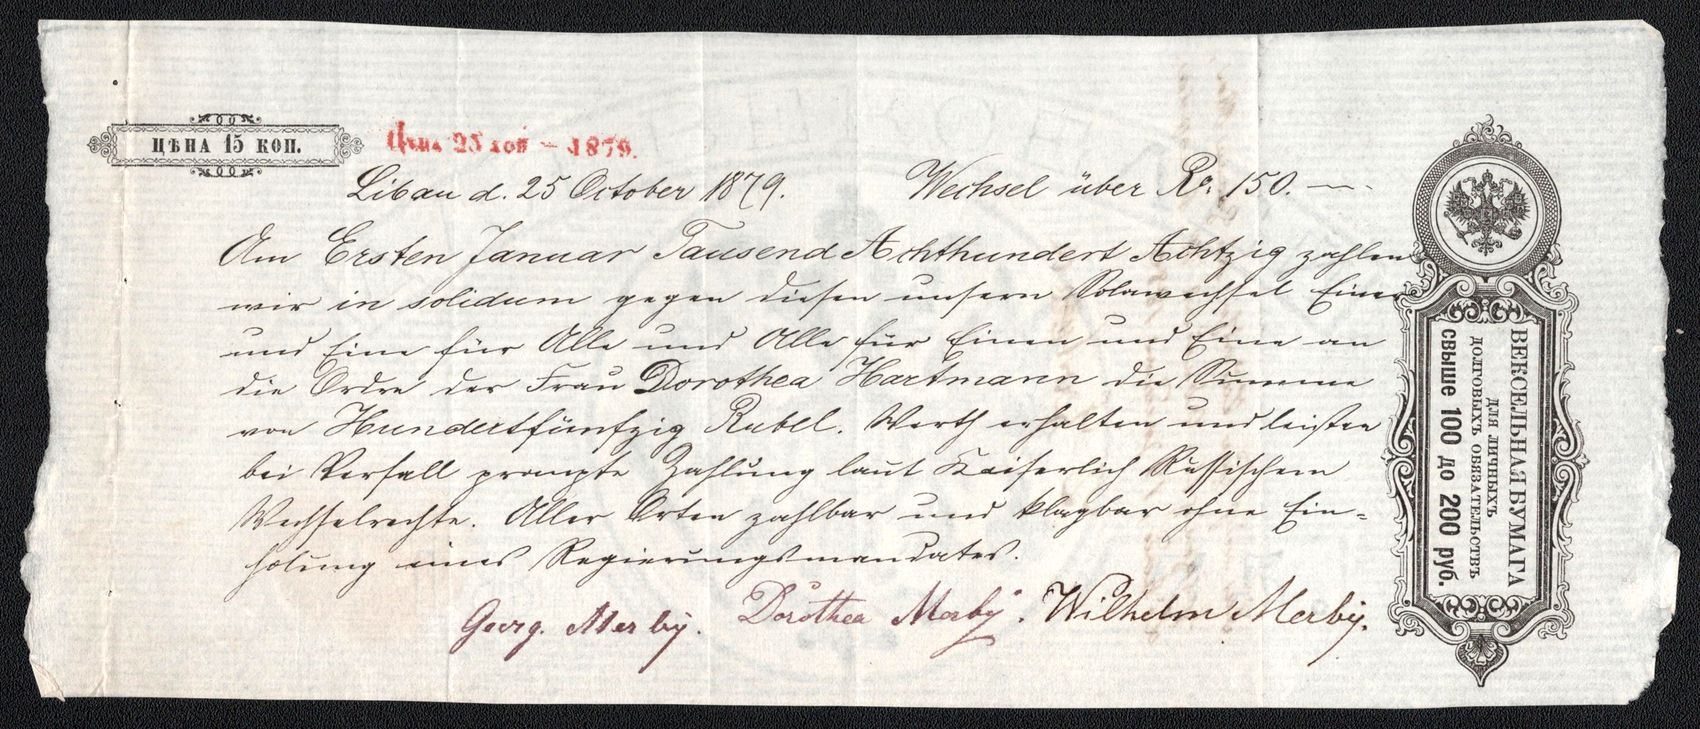 ЦѢНА 15 КОП.
Цѣна 25 коп — 1879.
Libau d. 25 October 1879. Wechsel über Ro. 150. —
Am Ersten Januar Tausend Achthundert Achtzig zahlen
wir in solidum gegen diesen unsern Solawechsel Einer
und Eine für Alle und Alle für Einen und Eine an
die Ordre der Frau Dorothea Hartmann die Summe
von Hundertfünfzig Rubel. Werth erhalten und leisten
bei Verfall prompte Zahlung laut Kaiserlich Russischem
Wechselrechte. Aller Orten zahlbar und klagbar ohne Ein=
holung eines Regierungsmandates.
Georg. Merby. Dorothea Merby. Wilhelm Merby.
ВЕКСЕЛЬНАЯ БУМАГА
ДЛЯ ЛИЧНЫХЪ
ДОЛГОВЫХЪ ОБЯЗАТЕЛЬСТВЪ
свыше 100 до 200 руб.